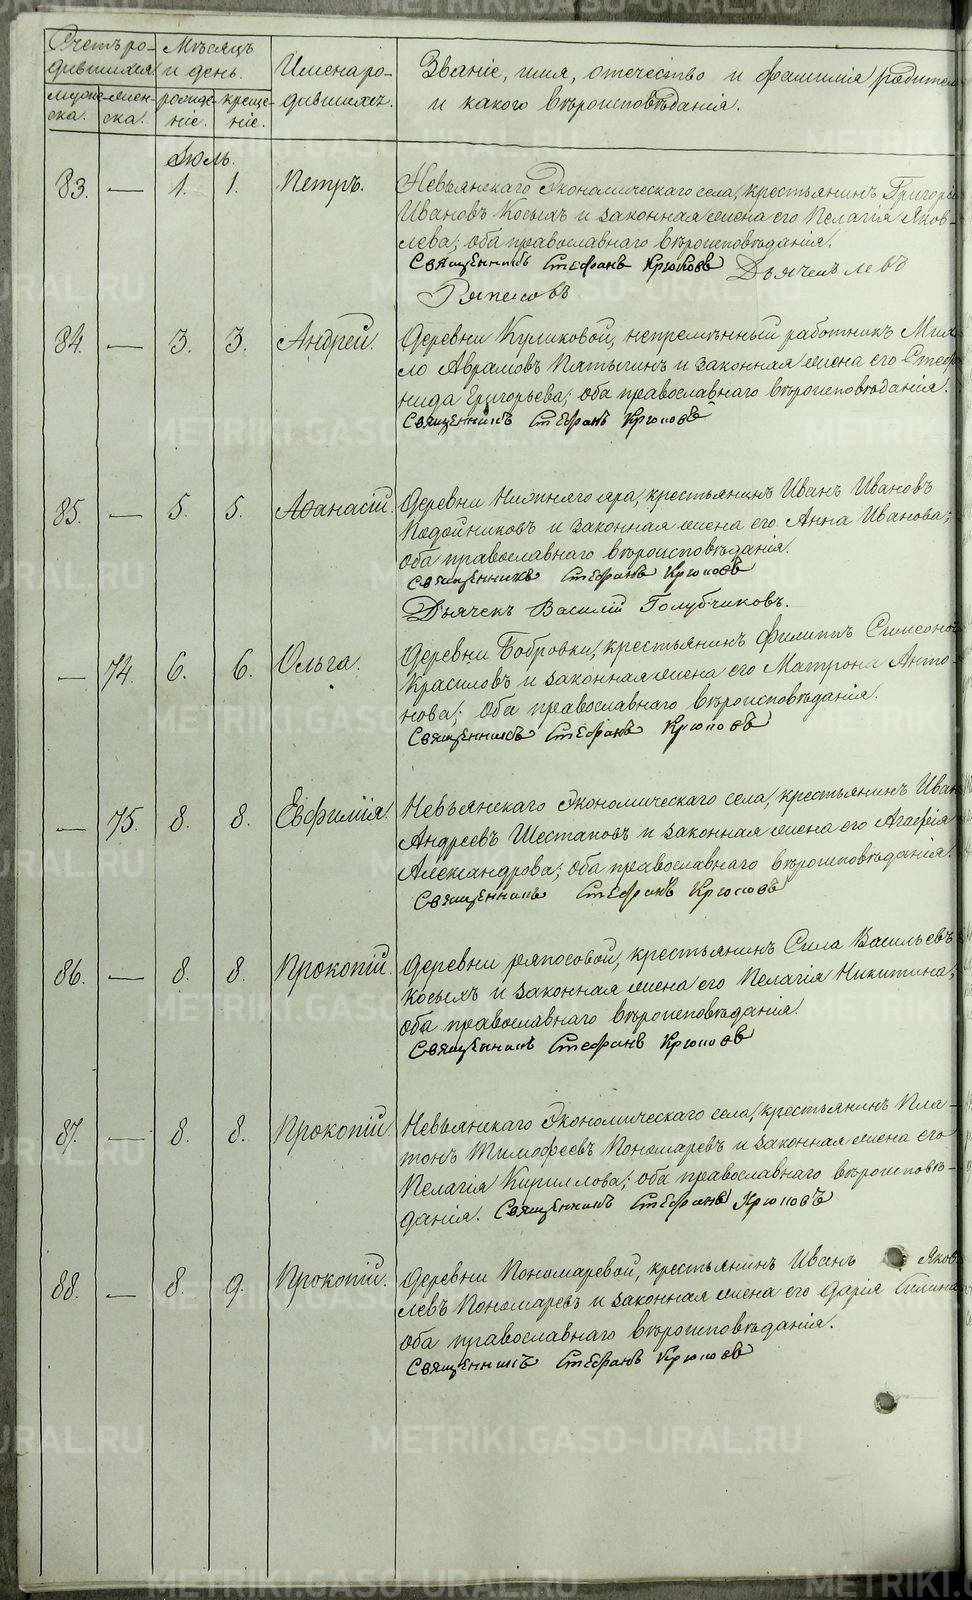 Счетъ ро-
дившихся
Мѣсяцъ
и день.
Имена ро-
дившихъ.
Званіе, имя, отечество и фамилія родител
и какого вѣроисповѣданія.
мужес-
ска.
жен-
ска.
рожде-
ніе.
креще-
ніе.
Іюль.
83. — 1. 1. Петръ. Невьянскаго Экономическаго села, крестьянинъ Григорій
Ивановъ Косыхъ и законная жена его Пелагія Яков-
лева; оба православнаго вѣроисповѣданія.
Священникъ Стефанъ Крюковъ Дьячек Левъ
Ряпосовъ
84. — 3. 3. Андрей. Деревни Куликовой, непремѣнный работникъ Миха-
ло Аврамовъ Патыгинъ и законная жена его Стефа
нида Григорьева; оба православнаго вѣроисповѣданія.
Священникъ Стефанъ Крюковъ
85. — 5. 5. Аѳанасій. Деревни Нижняго яра, крестьянинъ Иванъ Ивановъ
Подойниковъ и законная жена его Анна Иванова;
оба православнаго вѣроисповѣданія.
Священникъ Стефанъ Крюковъ
Дьячекъ Василій Голубчиковъ.
— 74. 6. 6. Ольга. Деревни Бобровки, крестьянинъ Филиппъ Симеоновъ
Красиловъ и законная жена его Матрона Анто-
нова; оба православнаго вѣроисповѣданія.
Священникъ Стефанъ Крюковъ
— 75. 8. 8. Евфимія. Невьянскаго Экономическаго села, крестьянинъ Иван
Андреевъ Шестаковъ и законная жена его Агафія
Александрова; оба православнаго вѣроисповѣданія.
Священникъ Стефанъ Крюковъ
86. — 8. 8. Прокопій. Деревни Ряпосовой, крестьянинъ Сила Васильевъ
Косыхъ и законная жена его Пелагія Никитина,
оба православнаго вѣроисповѣданія.
Священникъ Стефанъ Крюковъ
87. — 8. 8. Прокопій. Невьянскаго Экономическаго села, крестьянинъ Пла-
тонъ Тимофеевъ Пономаревъ и законная жена его
Пелагія Кириллова; оба православнаго вѣроисповѣ-
данія. Священникъ Стефанъ Крюковъ
88. — 8. 9. Прокопій. Деревни Пономаревой, крестьянинъ Иванъ Яков
левъ Пономаревъ и законная жена его Дарія Силина
оба православнаго вѣроисповѣданія.
Священникъ Стефанъ Крюковъ
METRIKI.GASO-URAL.RU